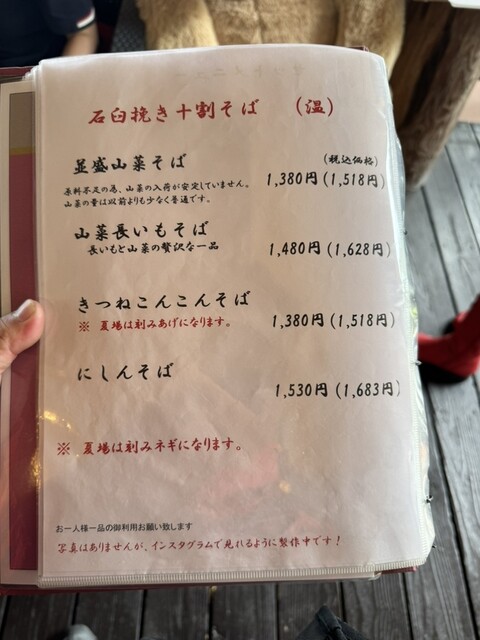 石臼挽き十割そば （温）
並盛山菜そば
（税込価格）
原料不足の為、山菜の入荷が安定していません。
1,380円（1,518円）
山菜の量は以前よりも少なく普通です。
山菜長いもそば
長いもと山菜の贅沢な一品
1,480円（1,628円）
きつねこんこんそば
※ 夏場は刻みあげになります。
1,380円（1,518円）
にしんそば
1,530円（1,683円）
※ 夏場は刻みネギになります。
お一人様一品の御利用お願い致します
写真はありませんが、インスタグラムで見れるように製作中です！